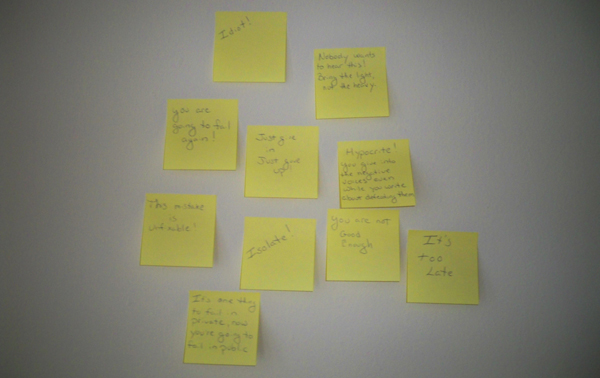 Idiot!
Nobody wants
to hear this!
Bring the light,
not the
you are
going to fail
again!
Just give
in
Just give
up!
Hypocrite!
you give into
the negative
voices even
while you write
about defeating them
This mistake
is
unfixable!
Isolate!
you are not
Good
Enough
It's
too
Late
It's one thing
to fail in
private, now
you're going to
fail in public